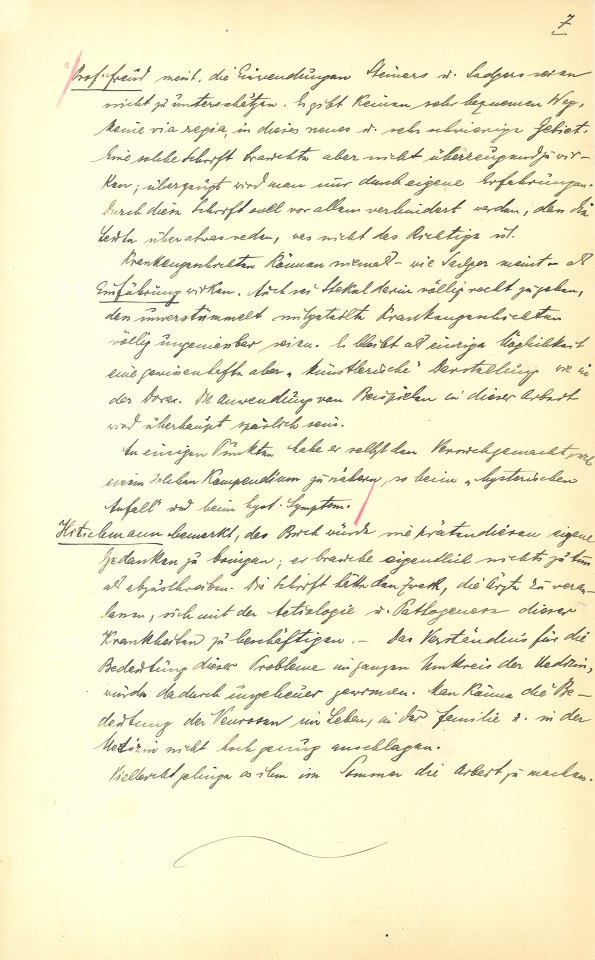 7
Prof. Freud meint, die Einwendungen Steiners u. Sadgers seien
nicht zu unterschätzen. Es gibt keinen sehr bequemen Weg,
keine via regia, in dieses neue u. sehr schwierige Gebiet.
Eine solche Schrift brauchte aber nicht überzeugend zu wir-
ken; überzeugt wird man nur durch eigene Erfahrungen.
Durch diese Schrift soll vor allem verhindert werden, dass die
Leute über etwas reden, was nicht das Richtige ist.
Krankengeschichten können niemals – wie Sadger meint – als
Einführung wirken. Auch sei Stekel darin völlig recht zu geben,
dass unverstümmelt mitgeteilte Krankengeschichten
völlig ungeniessbar seien. Es bleibt als einzige Möglichkeit
eine gewissenhafte aber „künstlerische" Darstellung wie in
der Dora. Die Anwendung von Beispielen in dieser Arbeit
wird überhaupt spärlich sein.
In einigen Punkten habe er selbst den Versuch gemacht, sich
einem solchen Kompendium zu nähern, so beim „hysterischen
Anfall" und beim hyst. Symptom.
Hitschmann bemerkt, das Buch würde nie prätendieren eigene
Gedanken zu bringen; er brauche eigentlich nichts zu tun
als abzuschreiben. Die Schrift hätte den Zweck, die Ärzte zu veran-
lassen, sich mit der Aetiologie u. Pathogenese dieser
Krankheiten zu beschäftigen. – Das Verständnis für die
Bedeutung dieser Probleme im ganzen Umkreis der Medizin,
würde dadurch ungeheuer gewonnen. Man könne die Be-
deutung der Neurosen im Leben, in der Familie u. in der
Medizin nicht hoch genug anschlagen.
Vielleicht gelinge es ihm im Sommer die Arbeit zu machen.